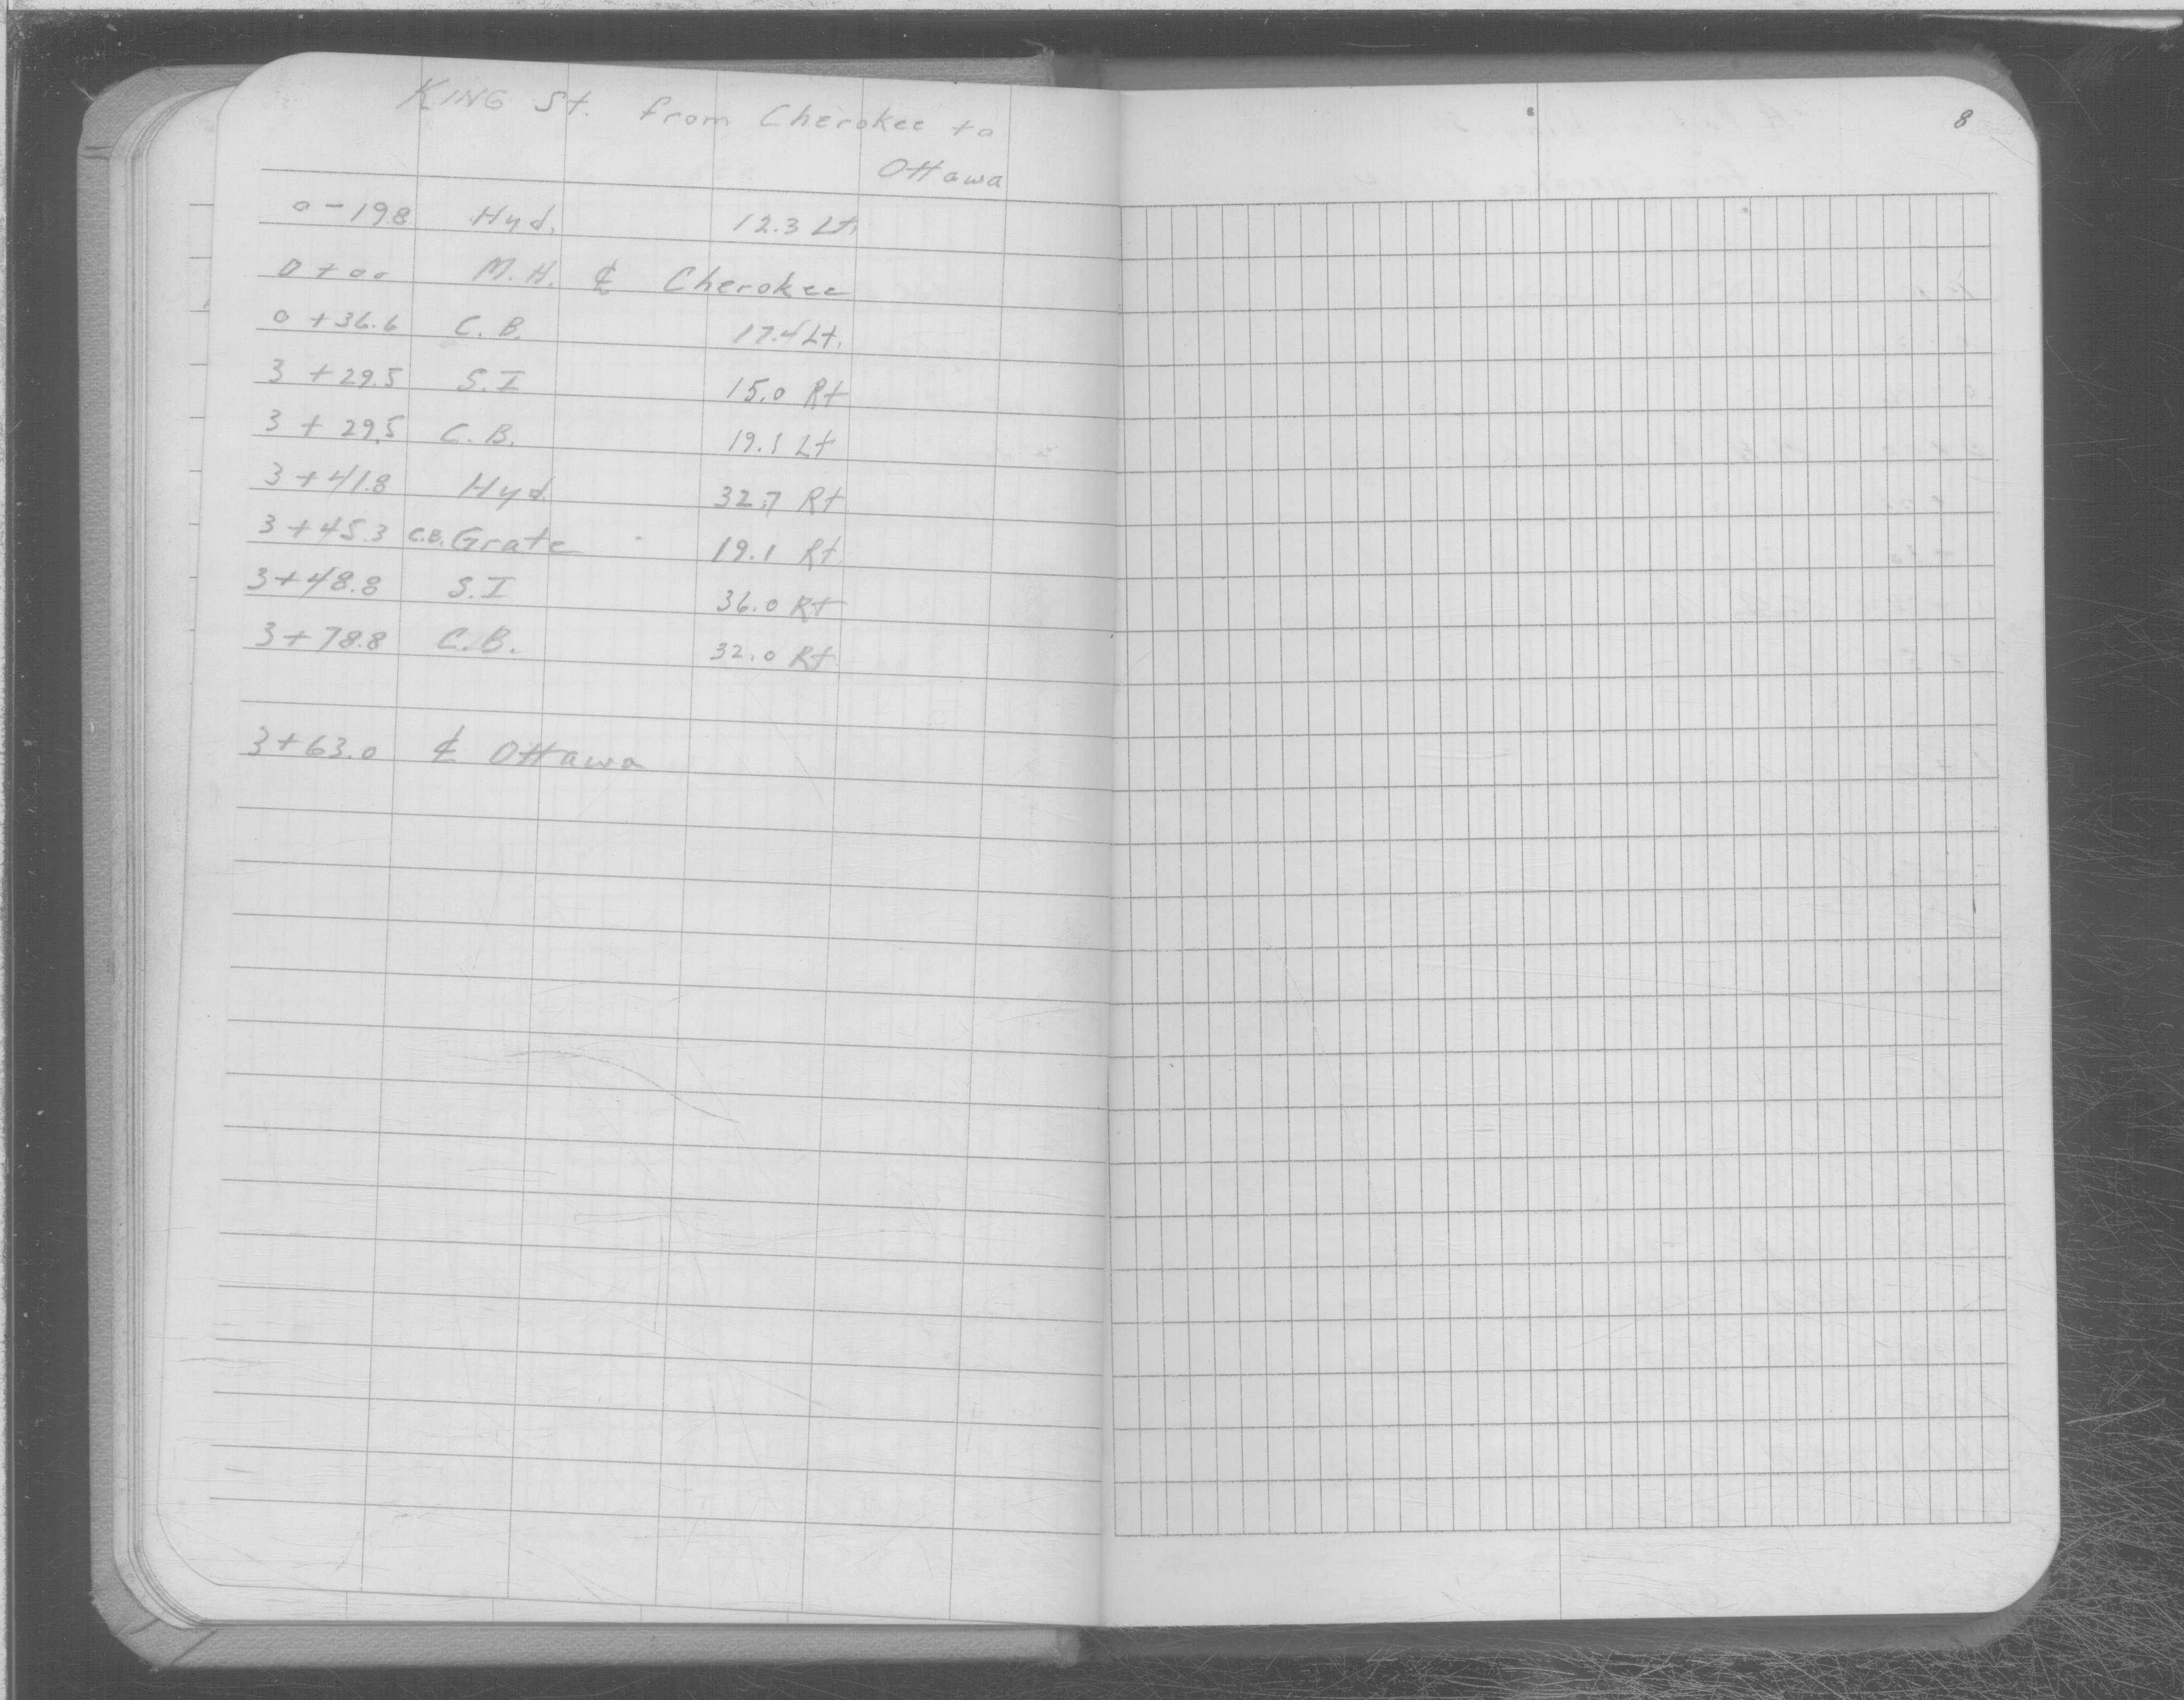 KING St. from Cherokee to
Ottawa
0-19.8 Hyd. 12.3 Lt.
0+00 M.H. ℄ Cherokee
0+36.6 C.B. 17.4 Lt.
3+29.5 S.I 15.0 Rt
3+29.5 C.B. 19.1 Lt
3+41.8 Hyd. 32.7 Rt
3+45.3 C.B. Grate 19.1 Rt.
3+48.8 S.I 36.0 Rt
3+78.8 C.B. 32.0 Rt
3+63.0 ℄ Ottawa
8